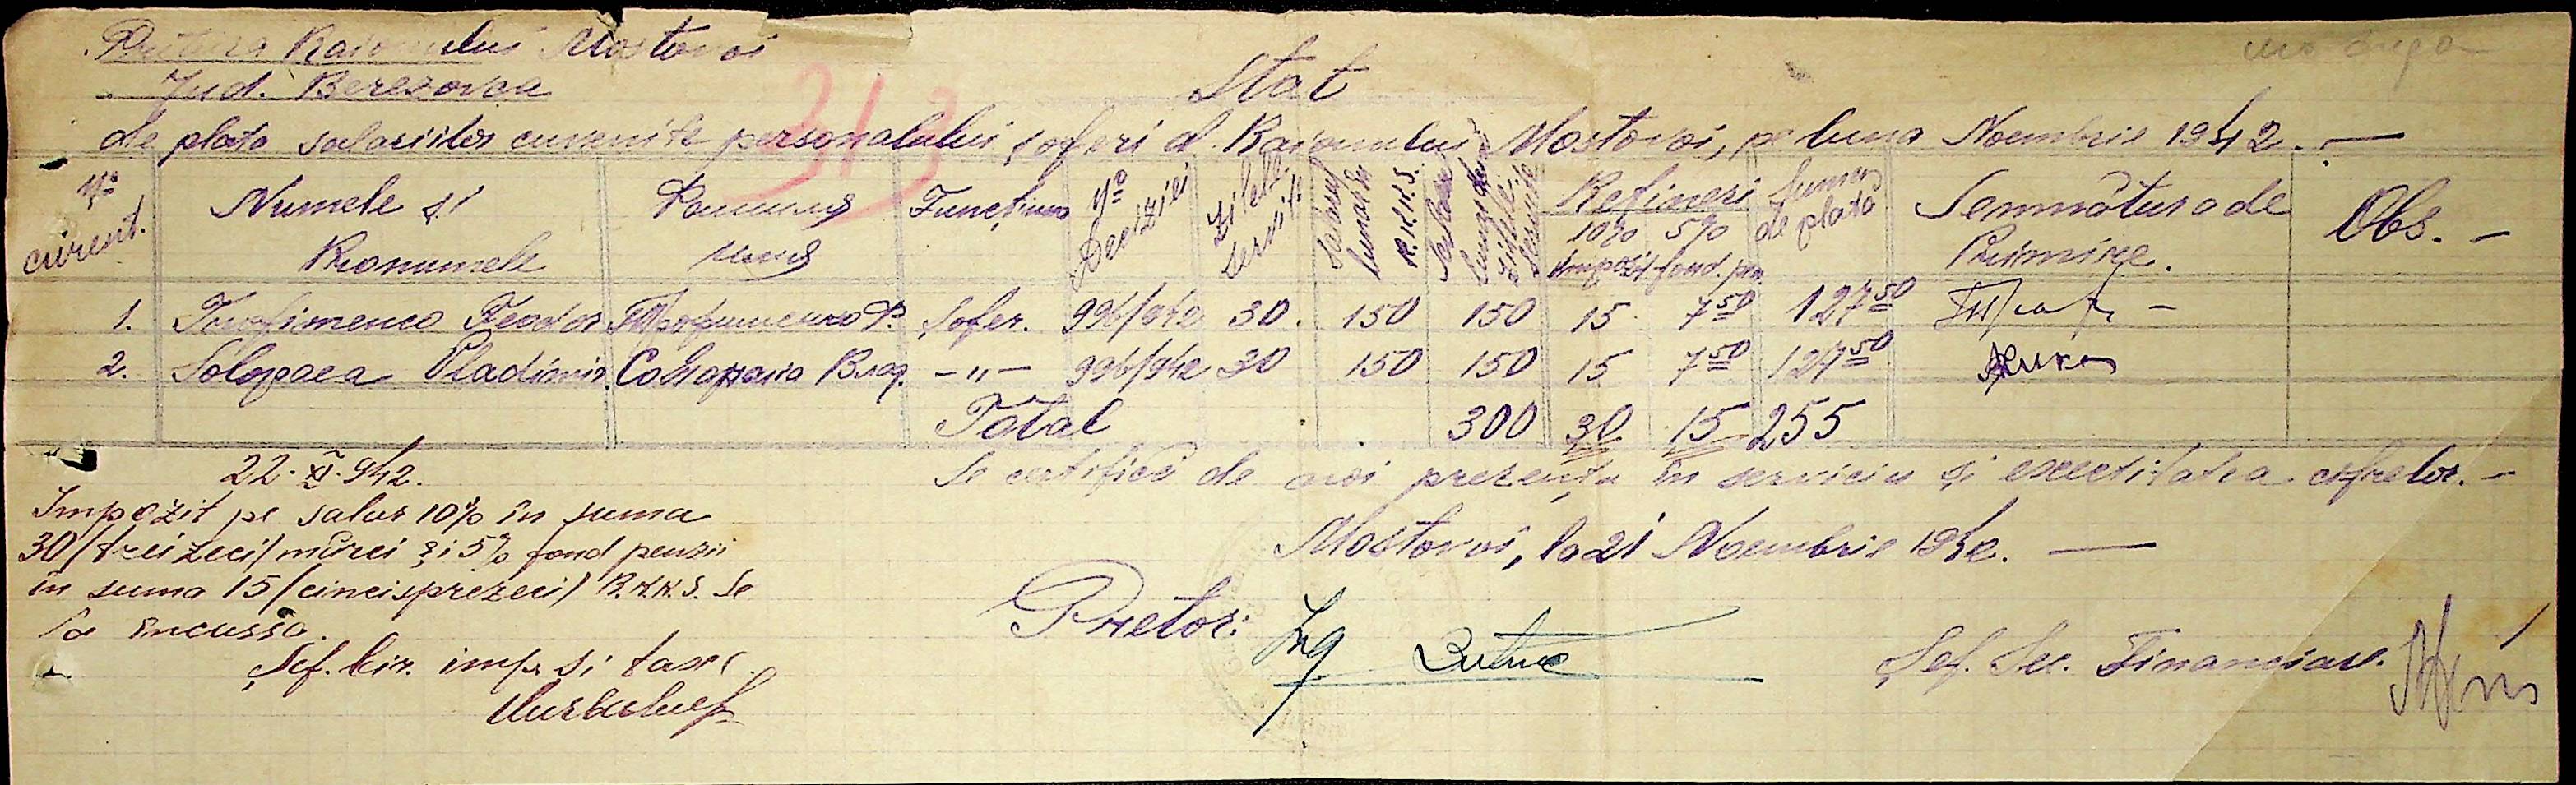 Pretura Raionului Mostovoi
Jud. Berezovca
313
Stat
de plata salariilor cuvenite personalului, șoferi al Raionului Mostovoi, pe luna Noembrie 1942. —
No curent. Numele și Pronumele Фамилия Funcțiunea No Deciziei Zilele servite Salariul lunar în R.K.K.S. Salariu Rețineri 10% impozit 5% fond. pen. Suma de plată Semnătura de Primire. Obs. -
1. Trofimenco Feodor Трофименко Ф. Șofer. 996/942 30. 150 150 15 7 50 127 50
2. Solopaea Vladimir. Солопаια Влад. -"- 996/942 30 150 150 15 7 50 127 50
Total 300 30 15 255
Se certifică de noi prezența în serviciu și exactitatea cifrelor. -
Mostovoi, la 21 Noembrie 1942. —
Pretor: Ing
Șef. Sec. Financiare.
22. XI. 942.
Impozit pe salar 10% în suma
30 /treizeci/ mărci și 5% fond pensii
în suma 15 /cincisprezeci/ R.K.K.S. Se
va încassa.
Șef. Cir. imp. și taxe.